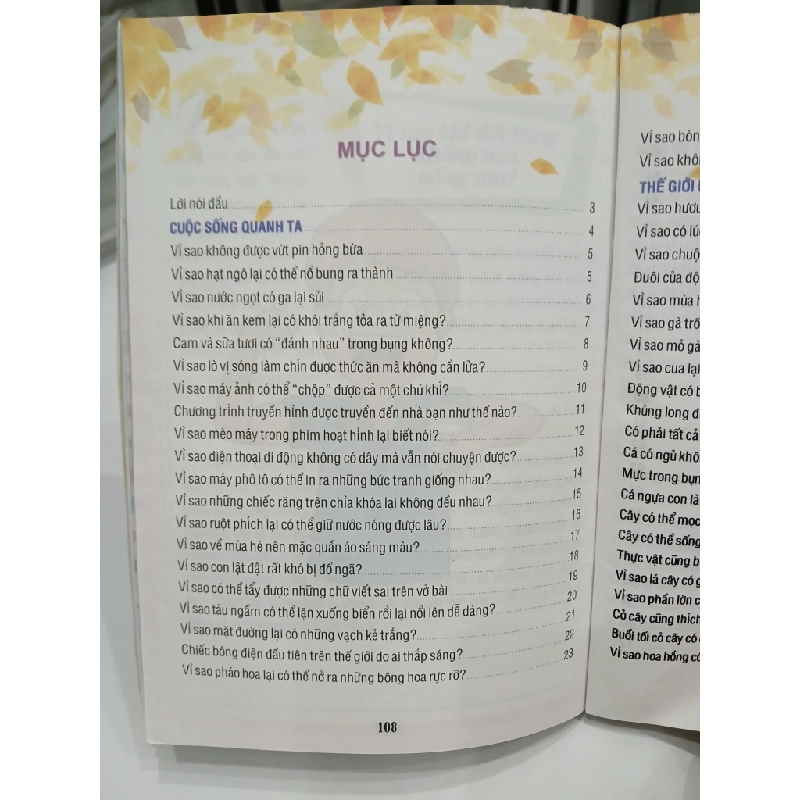 MỤC LỤC
Lời nói đầu 3
CUỘC SỐNG QUANH TA 4
Vì sao không được vứt pin hỏng bừa 5
Vì sao hạt ngô lại có thể nổ bung ra thành 5
Vì sao nước ngọt có ga lại sủi 6
Vì sao khi ăn kem lại có khói trắng tỏa ra từ miệng? 7
Cam và sữa tươi có "đánh nhau" trong bụng không? 8
Vì sao lò vi sóng làm chín được thức ăn mà không cần lửa? 9
Vì sao máy ảnh có thể "chộp" được cả một chú khỉ? 10
Chương trình truyền hình được truyền đến nhà bạn như thế nào? 11
Vì sao mèo máy trong phim hoạt hình lại biết nói? 12
Vì sao điện thoại di động không có dây mà vẫn nói chuyện được? 13
Vì sao máy phô tô có thể in ra những bức tranh giống nhau? 14
Vì sao những chiếc răng trên chìa khóa lại không đều nhau? 15
Vì sao ruột phích lại có thể giữ nước nóng được lâu? 15
Vì sao về mùa hè nên mặc quần áo sáng màu? 17
Vì sao con lật đật rất khó bị đổ ngã? 18
Vì sao có thể tẩy được những chữ viết sai trên vở bài 19
Vì sao tàu ngầm có thể lặn xuống biển rồi lại nổi lên dễ dàng? 20
Vì sao mặt đường lại có những vạch kẻ trắng? 21
Chiếc bóng điện đầu tiên trên thế giới do ai thắp sáng? 22
Vì sao pháo hoa lại có thể nở ra những bông hoa rực rỡ? 23
108
Vì sao bón
Vì sao khô
THẾ GIỚI
Vì sao hươu
Vì sao có lú
Vì sao chuộ
Đuôi của độ
Vì sao mùa
Vì sao gà trố
Vì sao mỏ gà
Vì sao cua lại
Động vật có b
Khủng long đ
Có phải tất cả
Cá có ngủ khô
Mực trong bụn
Cá ngựa con là
Cây có thể mọc
Cây có thể sống
Thực vật cũng b
Vì sao lá cây có g
Vì sao phần lớn c
Cỏ cây cũng thích
Buổi tối cỏ cây có
Vì sao hoa hồng có